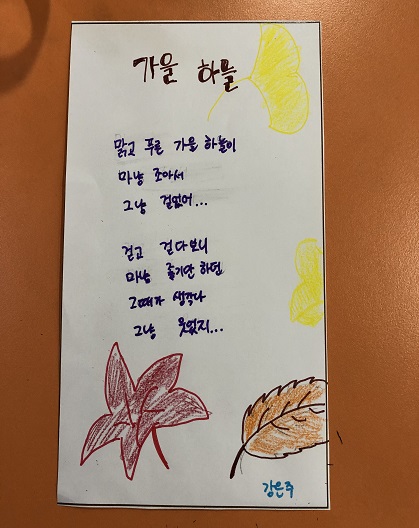 가을 하늘
맑고 푸른 가을 하늘이
마냥 조아서
그냥 걸었어...
걷고 걷다보니
마냥 좋기만 하던
그때가 생각나
그냥 웃었지...
강은주